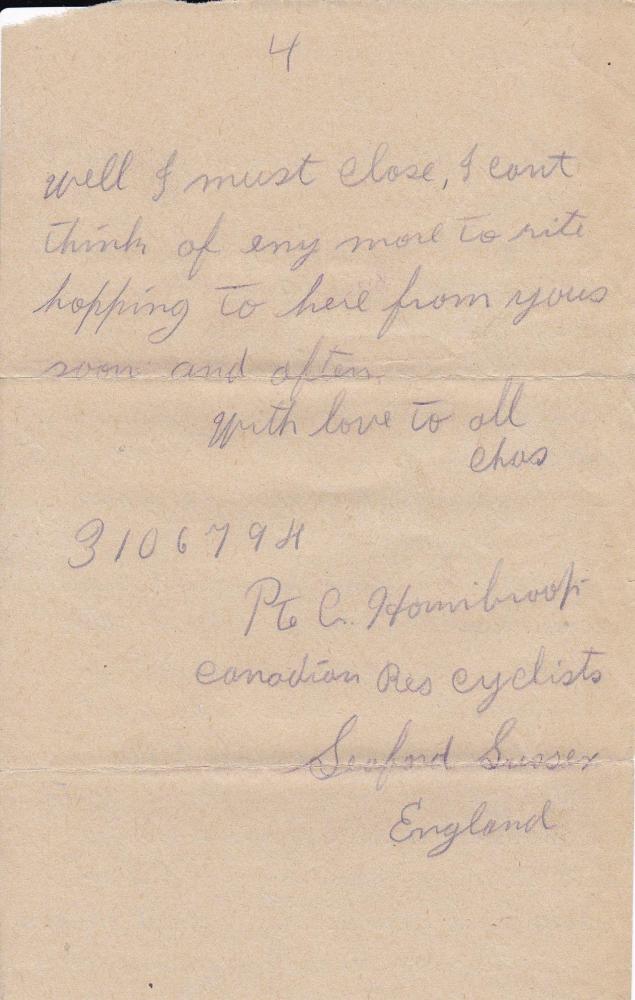 4
well I must close, I cant
think of eny more to rite
hopping to here from yous
soon and often.
With love to all
Chas
3106794
Pte C. Hornibrook
Canadian Res Cyclists
Seaford Sussex
England